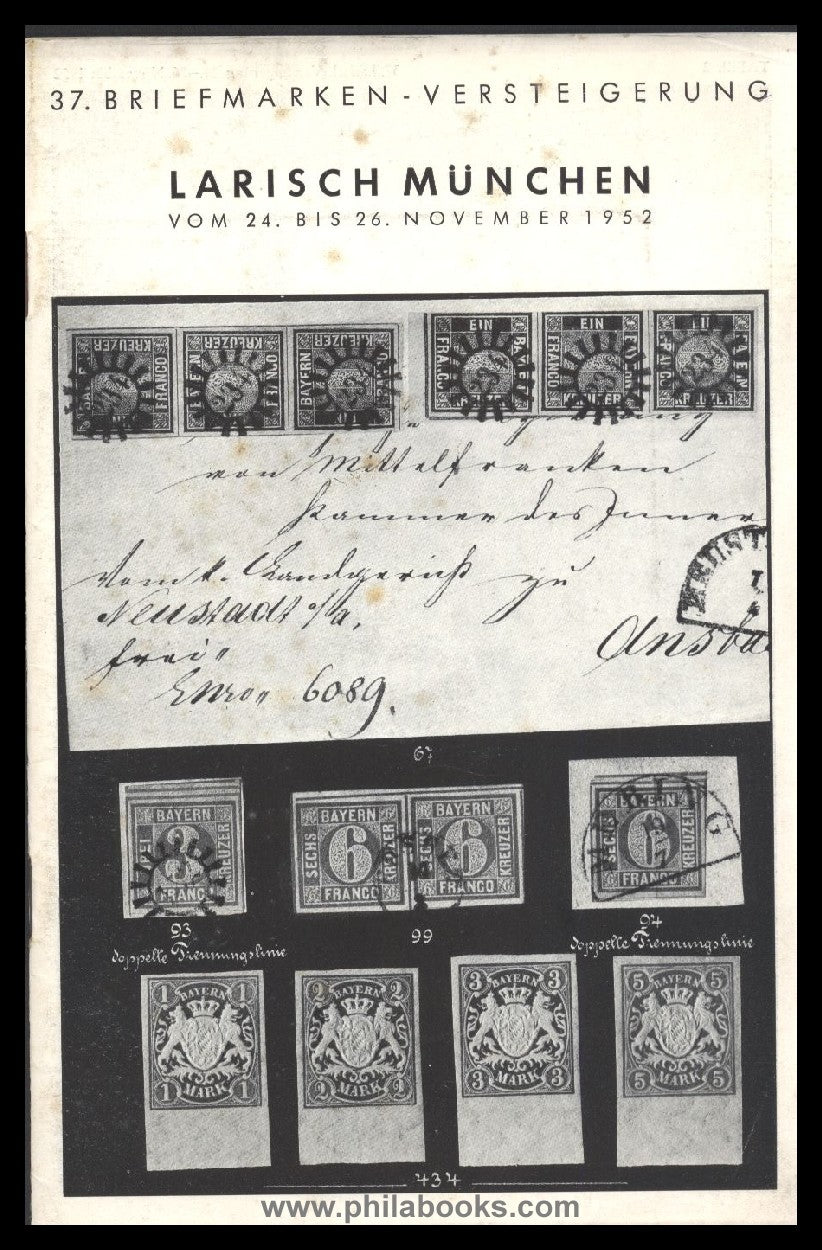 37. BRIEFMARKEN - VERSTEIGERUNG
LARISCH MÜNCHEN
VOM 24. BIS 26. NOVEMBER 1952
KREUZER KREUZER KREUZER EIN EIN
FRANCO FRANCO BAYERN FRANCO FRANCO
KREUZER KREUZER KREUZER
von Mittelfranken
Kammer des Inner
Vom k. Landgericht zu
Neustadt a/a.
frei
Ansba
6089.
67
BAYERN BAYERN BAYERN
KREUZER SECHS 6 KREUZER SECHS 6 KREUZER SECHS 6 KREUZER
FRANCO FRANCO FRANCO FRANCO
93 99 94
doppelte Trennungslinie doppelte Trennungslinie
1 BAYERN 1 2 BAYERN 2 3 BAYERN 3 5 BAYERN 5
1 MARK 1 2 MARK 2 3 MARK 3 5 MARK 5
434
www.philabooks.com